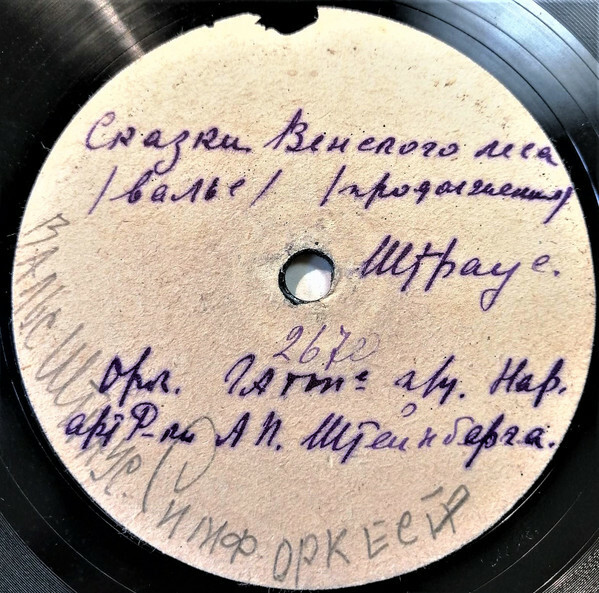 Сказки Венского леса
/вальс/ /продолжение/
Штраус.
2670
Орк. ГАБТа п/у. Нар.
арт Р-ки А П. Штейнберга.
ВАЛЬС ШТРАУС. СИМФ. ОРКЕСТР